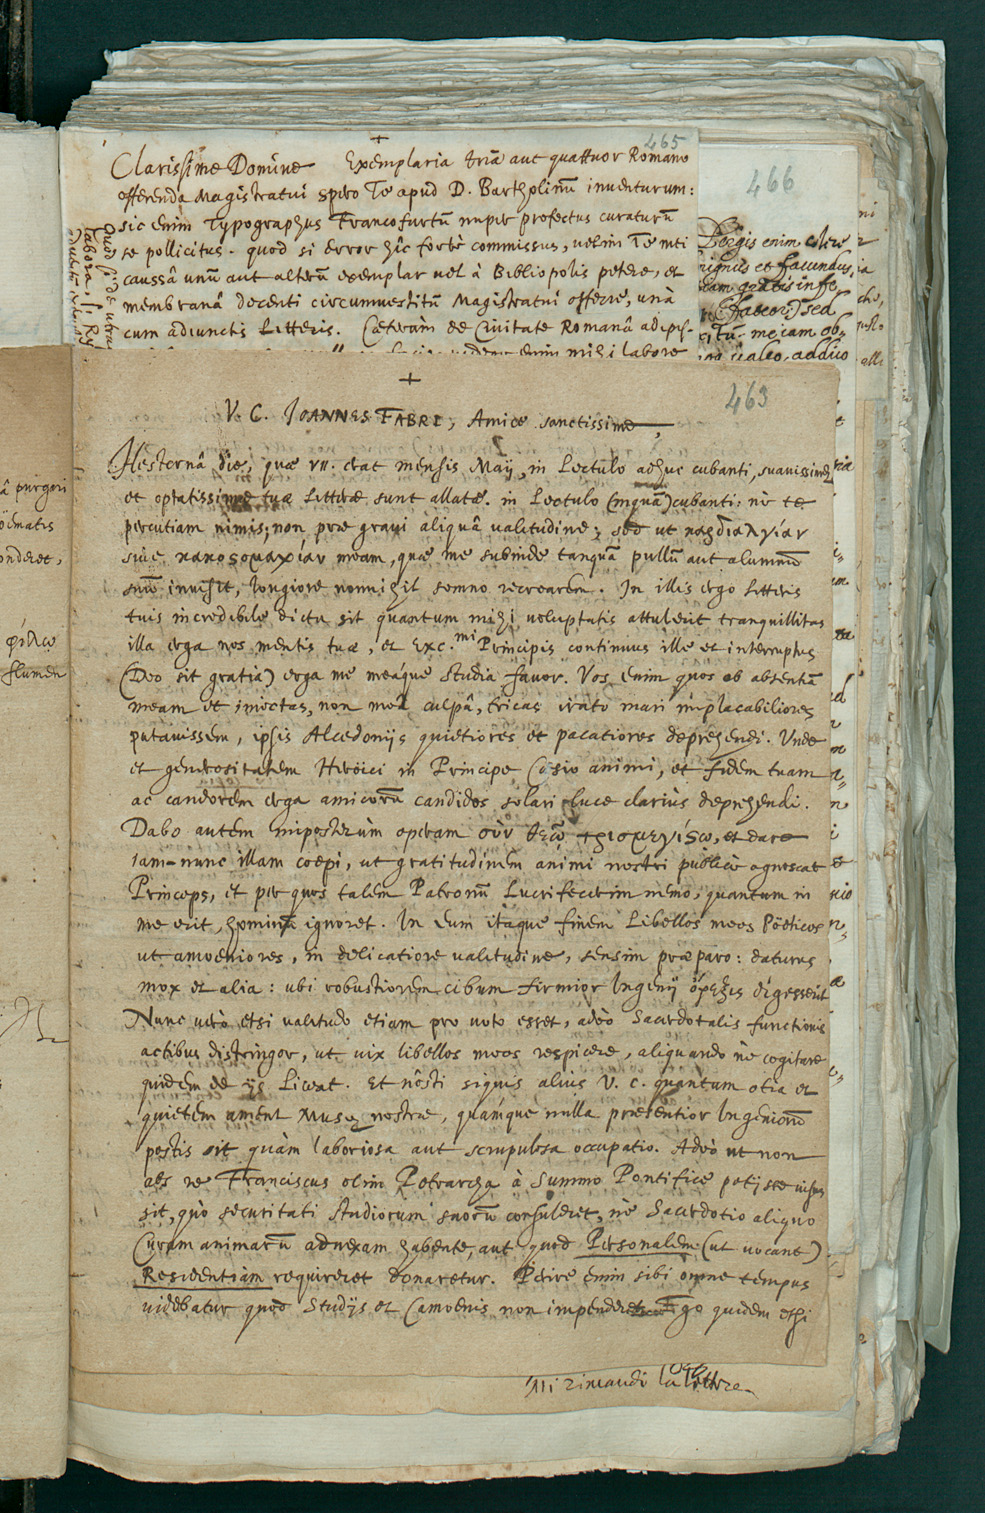 465
Clarissime Domine Exemplaria tria aut quattuor Romano
offerenda Magistratui spero Te apud D. Bartholinũ inuenturum:
sic enim Typographus Francofurtũ nuper profectus curaturũ
se pollicitus. quod si error hîc fortè commissus, uelim Te mei
caussâ unũ aut alterũ exemplar uel à Bibliopolis petere, et
membranâ decenti circumuestitũ Magistratui offerre, unà
cum adiunctis Litteris. Cæterùm de Ciuitate Romanâ adipis-
enim mihi labore
466
Pergis enim colere
et facundus,
gratis
(fateor) sed
meiam ob-
addito
463
V. C. JOANNES FABRI, Amice sanctissime,
Hesternâ die, quæ VII. erat mensis Maij, in Lectulo adhuc cubanti, suauissimæ
et optatissimæ tuæ Litteræ sunt allatæ. in Lectulo (inquã) cubanti; nè te
percutiam nimis; non præ graui aliquâ ualitudine; sed ut καρδιαλγίαν
siue κακοστομαχίαν meam, quæ me subinde tanquã pullũ aut alumnũ
suũ inuisit, longiore nonnihil somno recrearem. In illis ergo Litteris
tuis incredibile dictu sit quantum mihi uoluptatis attulerit tranquillitas
illa erga nos mentis tuæ, et Exc.mi Principis continuus ille et interruptus
(Deo sit gratia) erga me meáque studia fauor. Vos enim quos ob absentiã
meam et iniectas, non meâ culpâ, tricas irato mari implacabiliores
putauissem, ipsis Alcedonijs quietiores et pacatiores deprehendi. Unde
et generositatem Heroici in Principe Cæsio animi, et fidem tuam
ac candorem erga amicorũ candidos solari luce clariùs deprehendi.
Dabo autem imposterùm operam σὺν θεῷ τρισμεγίστῳ, et dare
iam-nunc illam coepi, ut gratitudinem animi nostri publicè agnoscat
Princeps, et per quos talem Patronũ Lucrifecerim nemo, quantum in
me erit, hominũ ignoret. In eum itaque finem Libellos meos Poëticos
ut amoeniores, in delicatiore ualitudine, sensim præparo: daturus
mox et alia: ubi robustiorem cibum firmior Ingenij ὄρεξις digesserit
Nunc uerò etsi ualitudo etiam pro uoto esset, adeò Sacerdotalis functionis
actibus distringor, ut uix libellos meos respicere, aliquando ne cogitare
quidem de ijs Liceat. Et nôsti siquis alius V. C. quantum otia et
quietem ament Musæ nostræ, quámque nulla præsentior Ingeniorũ
pestis sit quàm laboriosa aut scrupulosa occupatio. Adeò ut non
abs re Franciscus olim Petrarcha à Summo Pontifice petijsse uisus
sit, quò securitati studiorum suorũ consuleret, nè Sacerdotio aliquo
Curam animarũ adnexam habente, aut quod Personalem (ut uocant)
Residentiam requireret donaretur. Perire enim sibi omne tempus
uidebatur quod Studijs et Camoenis non impenderet. Ego quidem etsi
Mi rimandi la lettera